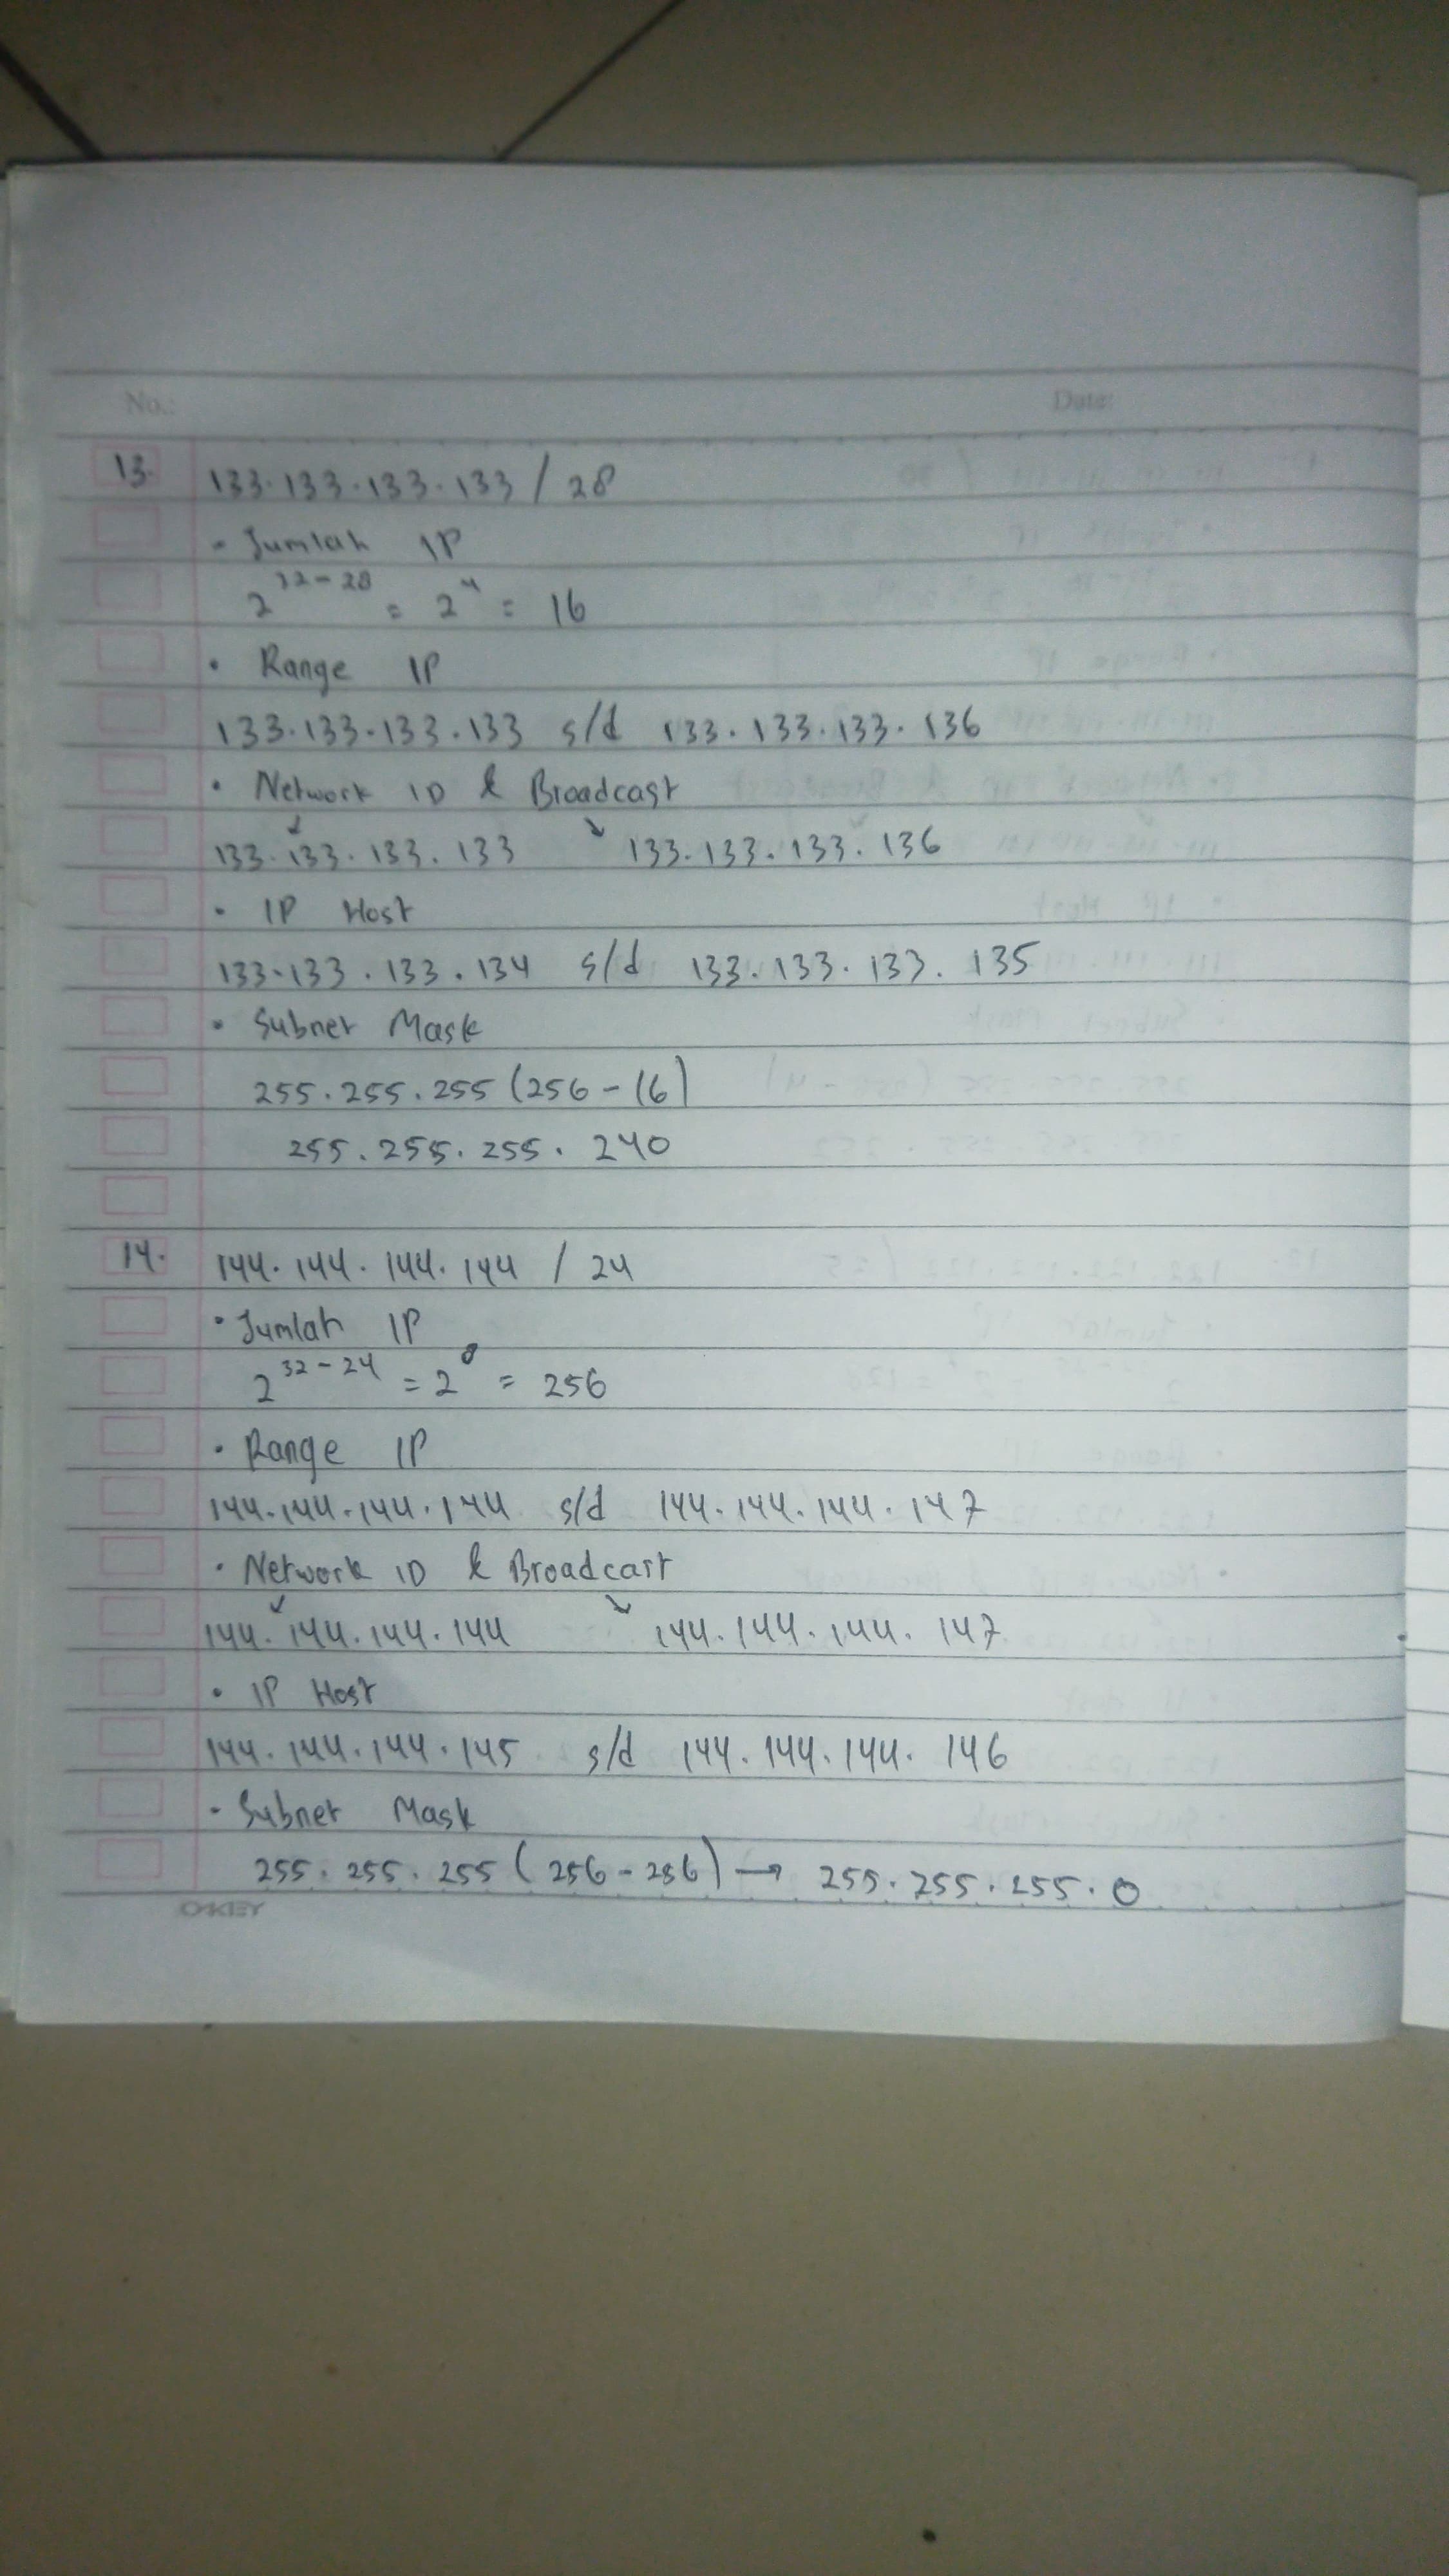 No.: Date:
13. 133.133.133.133 / 28
• Jumlah IP
2^32-28 = 2^4 = 16
• Range IP
133.133.133.133 s/d 133.133.133.136
• Network ID & Broadcast
133.133.133.133 133.133.133.136
• IP Host
133.133.133.134 s/d 133.133.133.135
• Subnet Mask
255.255.255 (256-16)
255.255.255.240
14. 144.144.144.144 / 24
• Jumlah IP
2^32-24 = 2^8 = 256
• Range IP
144.144.144.144 s/d 144.144.144.147
• Network ID & Broadcast
144.144.144.144 144.144.144.147
• IP Host
144.144.144.145 s/d 144.144.144.146
• Subnet Mask
255.255.255 (256-256) → 255.255.255.0
OKEY